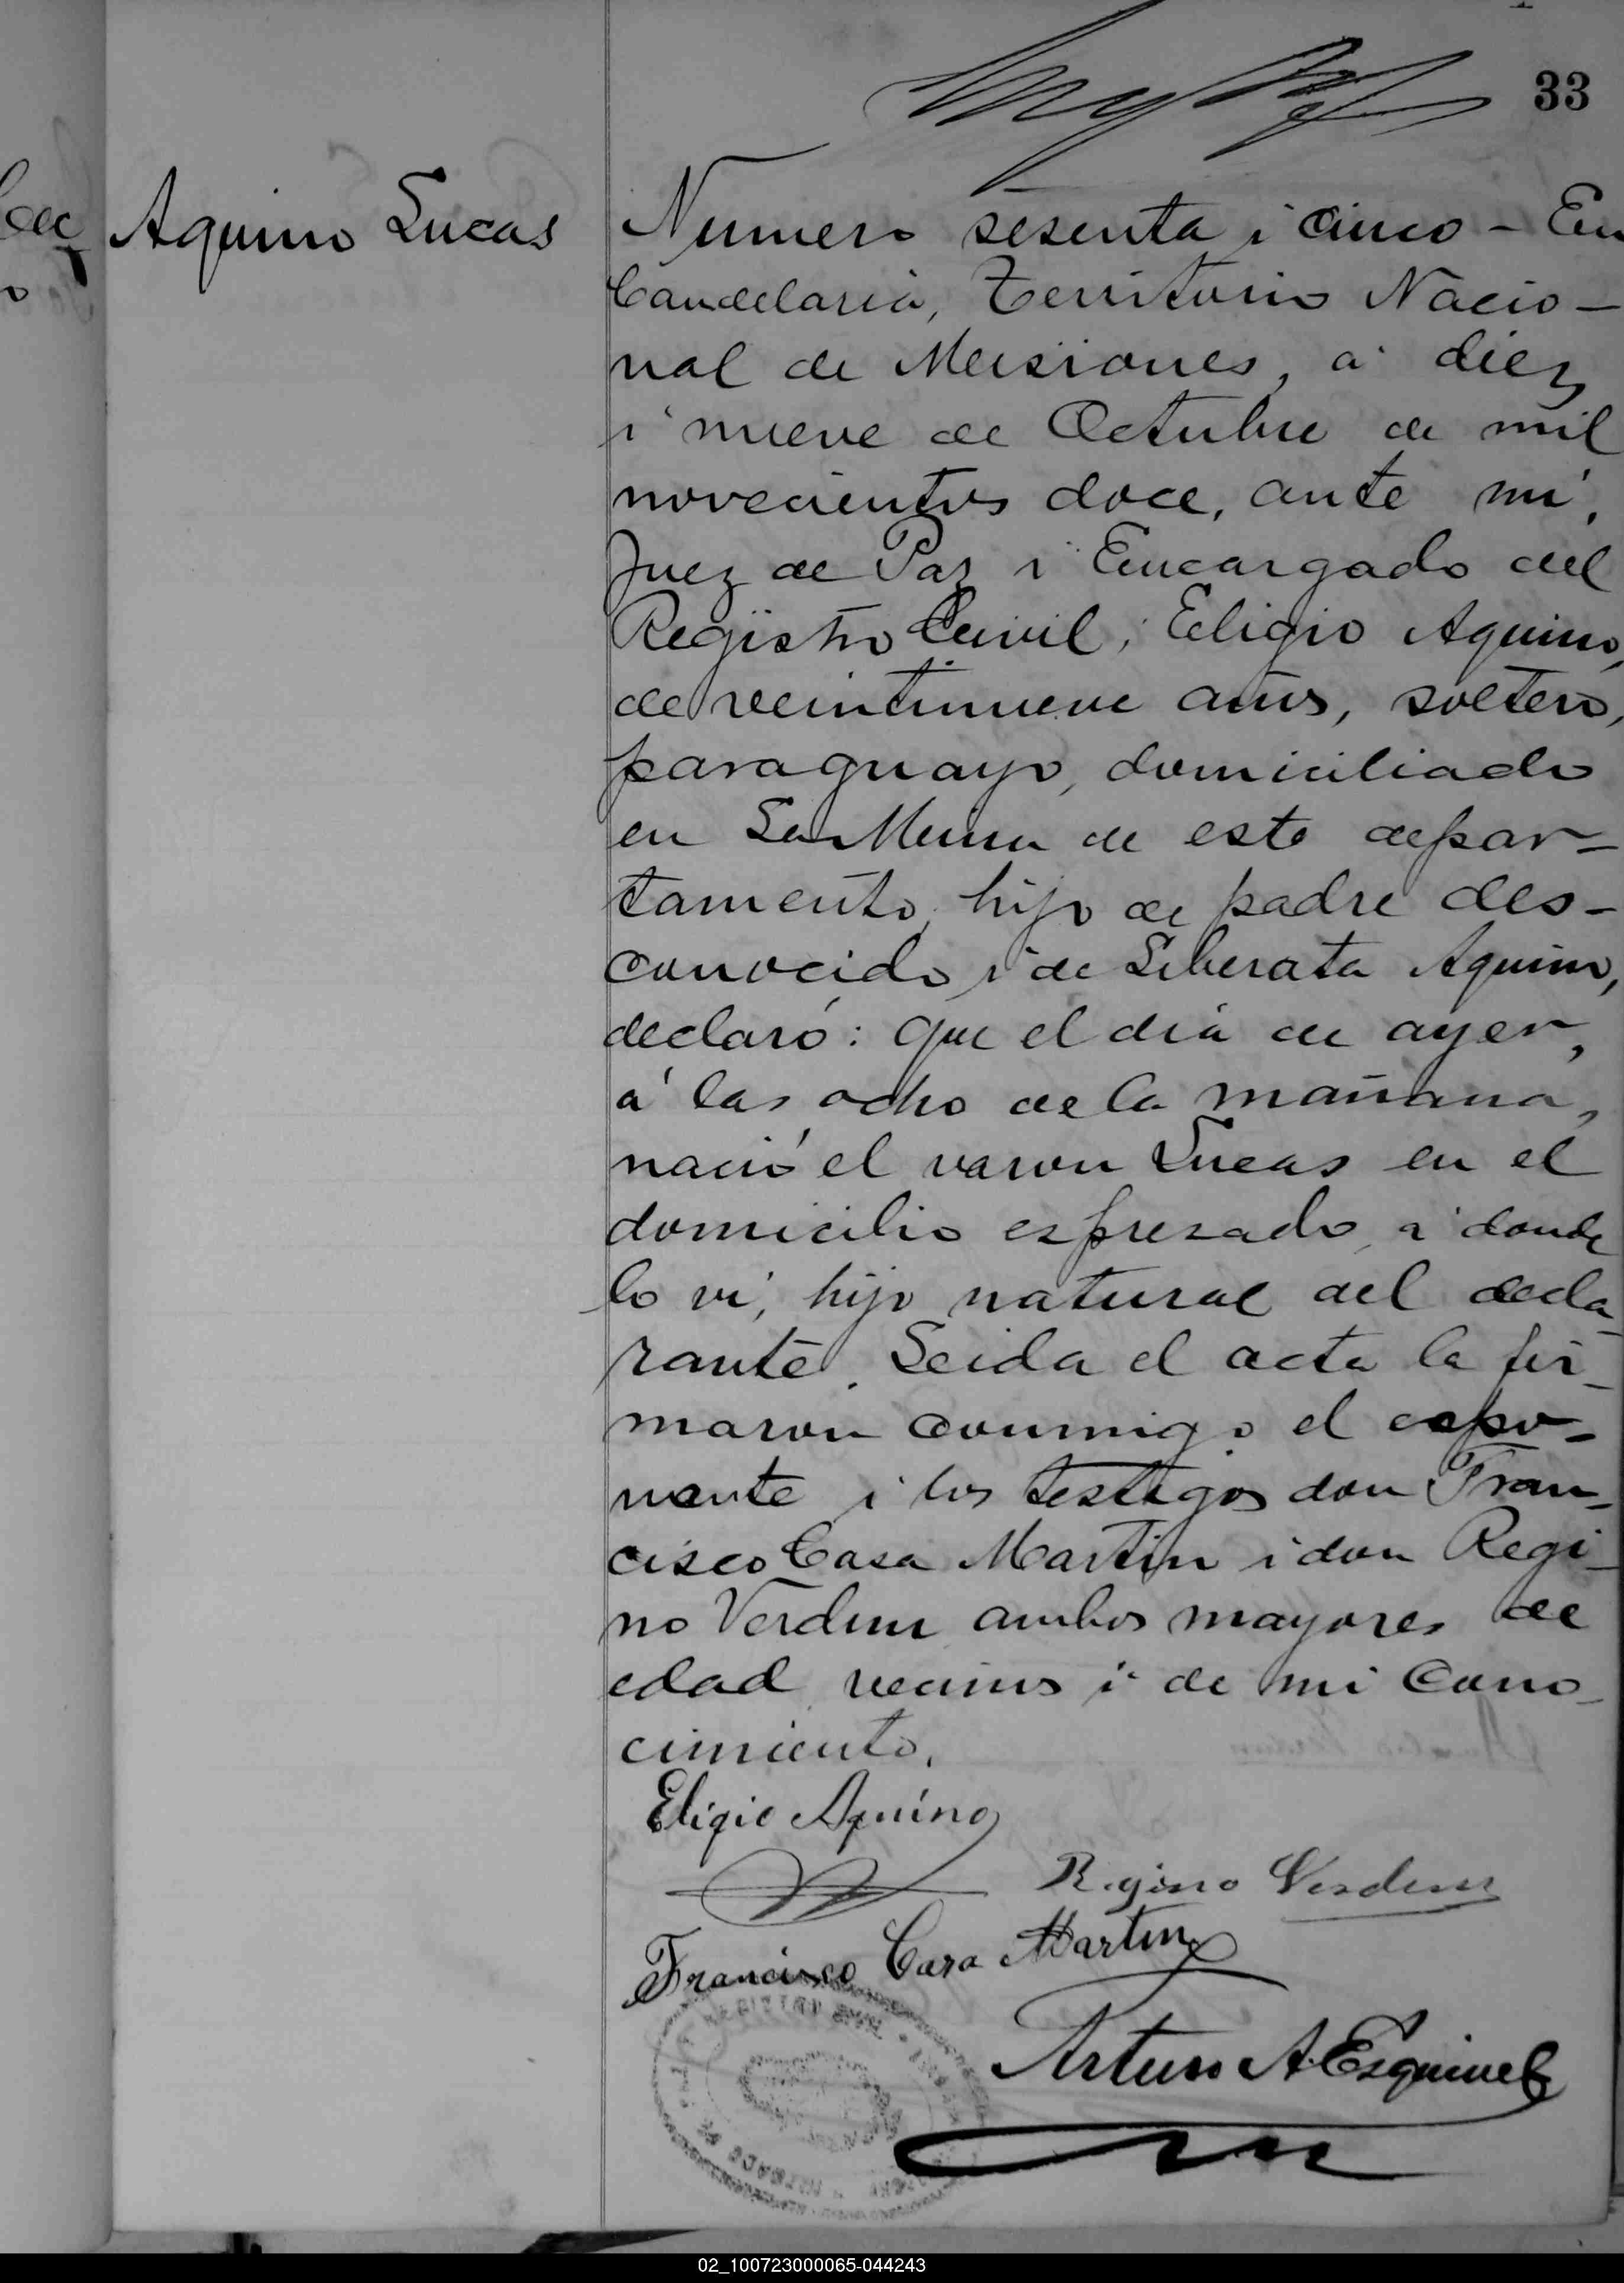 33
Aquino Lucas
Numero sesenta i cinco - En
Candelaria, Territorio Nacio-
nal de Misiones, a diez
i nueve de Octubre de mil
novecientos doce, ante mi,
Juez de Paz i Encargado del
Registro Civil, Eligio Aquino,
de veintinueve años, soltero,
paraguayo, domiciliado
en de este depar=
tamento, hijo de padre des-
conocido i de Liberata Aquino,
declaró: que el dia de ayer,
á las ocho de la mañana,
nació el varon Lucas en el
domicilio espresado, a donde
lo vi, hijo natural del decla
rante. Leida el acta la fir-
maron conmigo el espo-
nente i los testigos don Fran-
cisco Casa Martin i don Regi-
no Verdun ambos mayores de
edad vecinos i de mi cono-
cimiento.
Eligio Aquino
Regino Verdun
Francisco Cara Martin
Arturo A. Esquivel
02_100723000065-044243